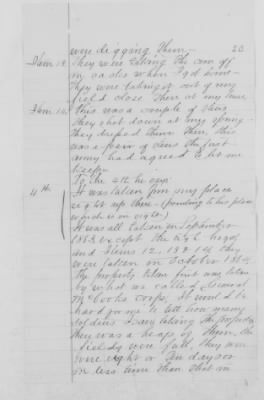 were digging them — 20
Item 13. They were taking the corn off
my stalks when I got home —
they were taking it out of my
field close there at my house
Item 14. This was a couple of steers
they shot down at my spring —
they dressed them there, this
was a pair of steers the first
army had agreed to let me
keep
To the 4th he says
4th It was taken from my place
right up there — (pointing to his place
which is in sight)
It was all taken in September
1863, except the
and Items 12, 13 & 14 they
were taken in October 1863
the property taken first was taken
by what we called General
McCooks Corps, it would be
hard for me to tell how many
soldiers I saw taking the property
there was a heap of them the
fields were full, they were
some eight or ten days or
in less time than that in